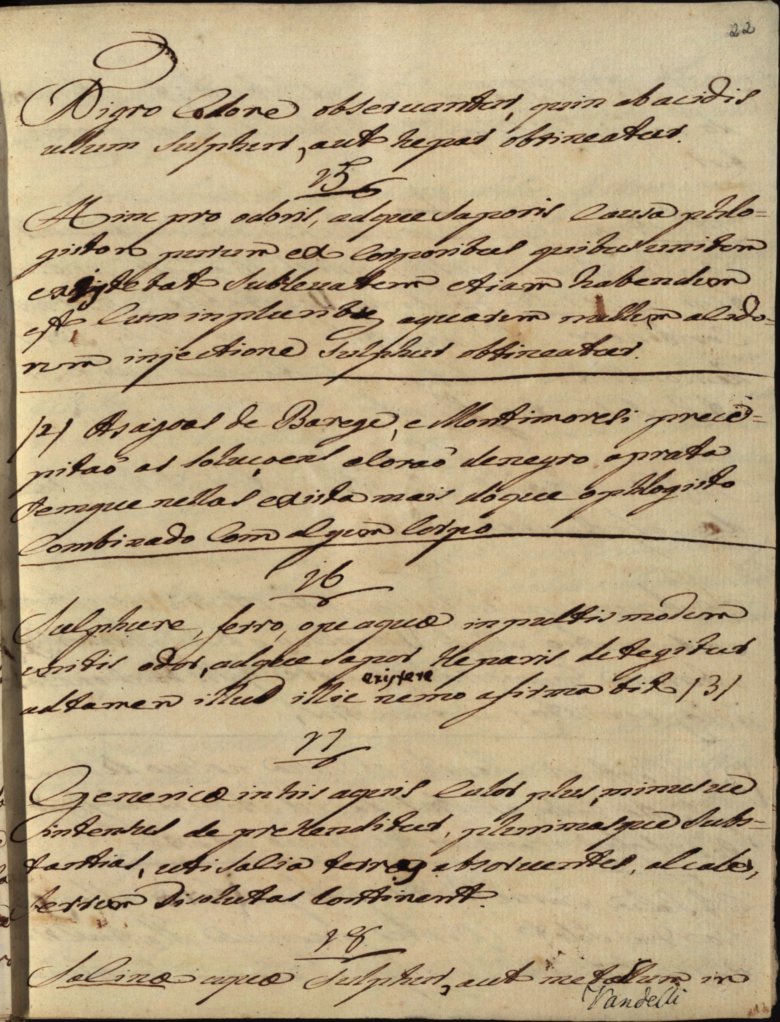 22
Nigro Colore observantur, quin ab acidis
ullum Sulphur, aut hepar obtineatur.
15
Hinc pro odoris, adque Saporis Causa phlo-
giston purum ex Corporibus quibus unitum
existebat Sublevatum etiam habendum
est Cum in pluribus aquarum nullum acido-
rum injectione Sulphur obtineatur.
/2/ As agoas de Barege, e Montimoresi preci-
pitaõ as Soluçoens eloraõ denegro aprata
semque nellas exista mais doque ophlogisto
Combinado Com algum Corpo
16
Sulphure, ferro, ope aquæ in pultis modum
unitis odor, adque Sapor heparis detegitur
adtamen illud illic existere nemo afirmabit /3/
17
Genericæ in his aquis Calor plus, minusve
intensus deprehenditur, plurimasque Subs-
tantias, uti Salia terras absorventes, alcales,
ferrum Disolutas Continent.
18
Salinæ aquæ Sulphur, aut metallum in
Vandelli